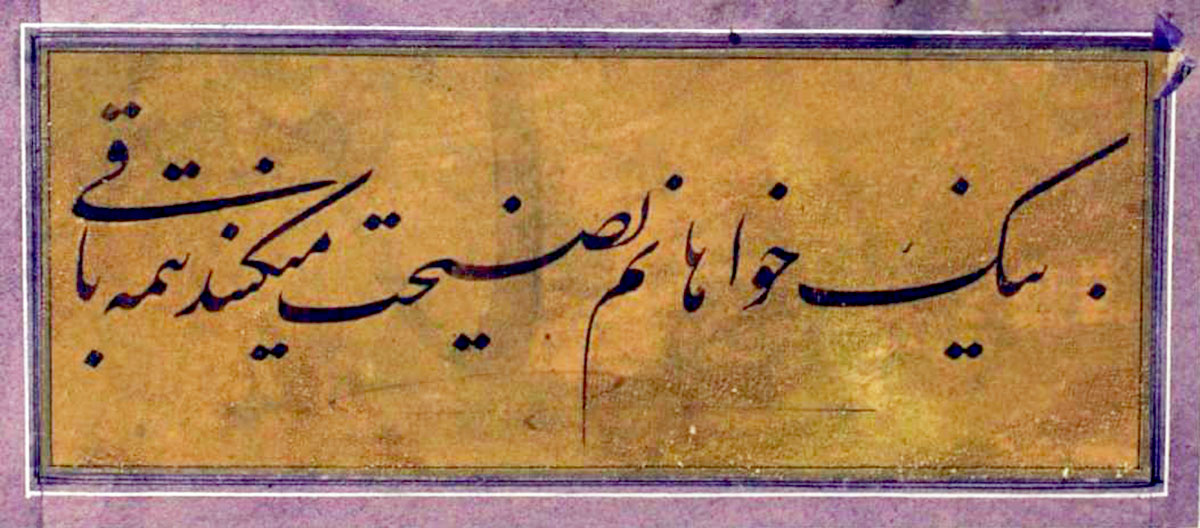 نیک خواهانم نصیحت میکنند تتمه باقی